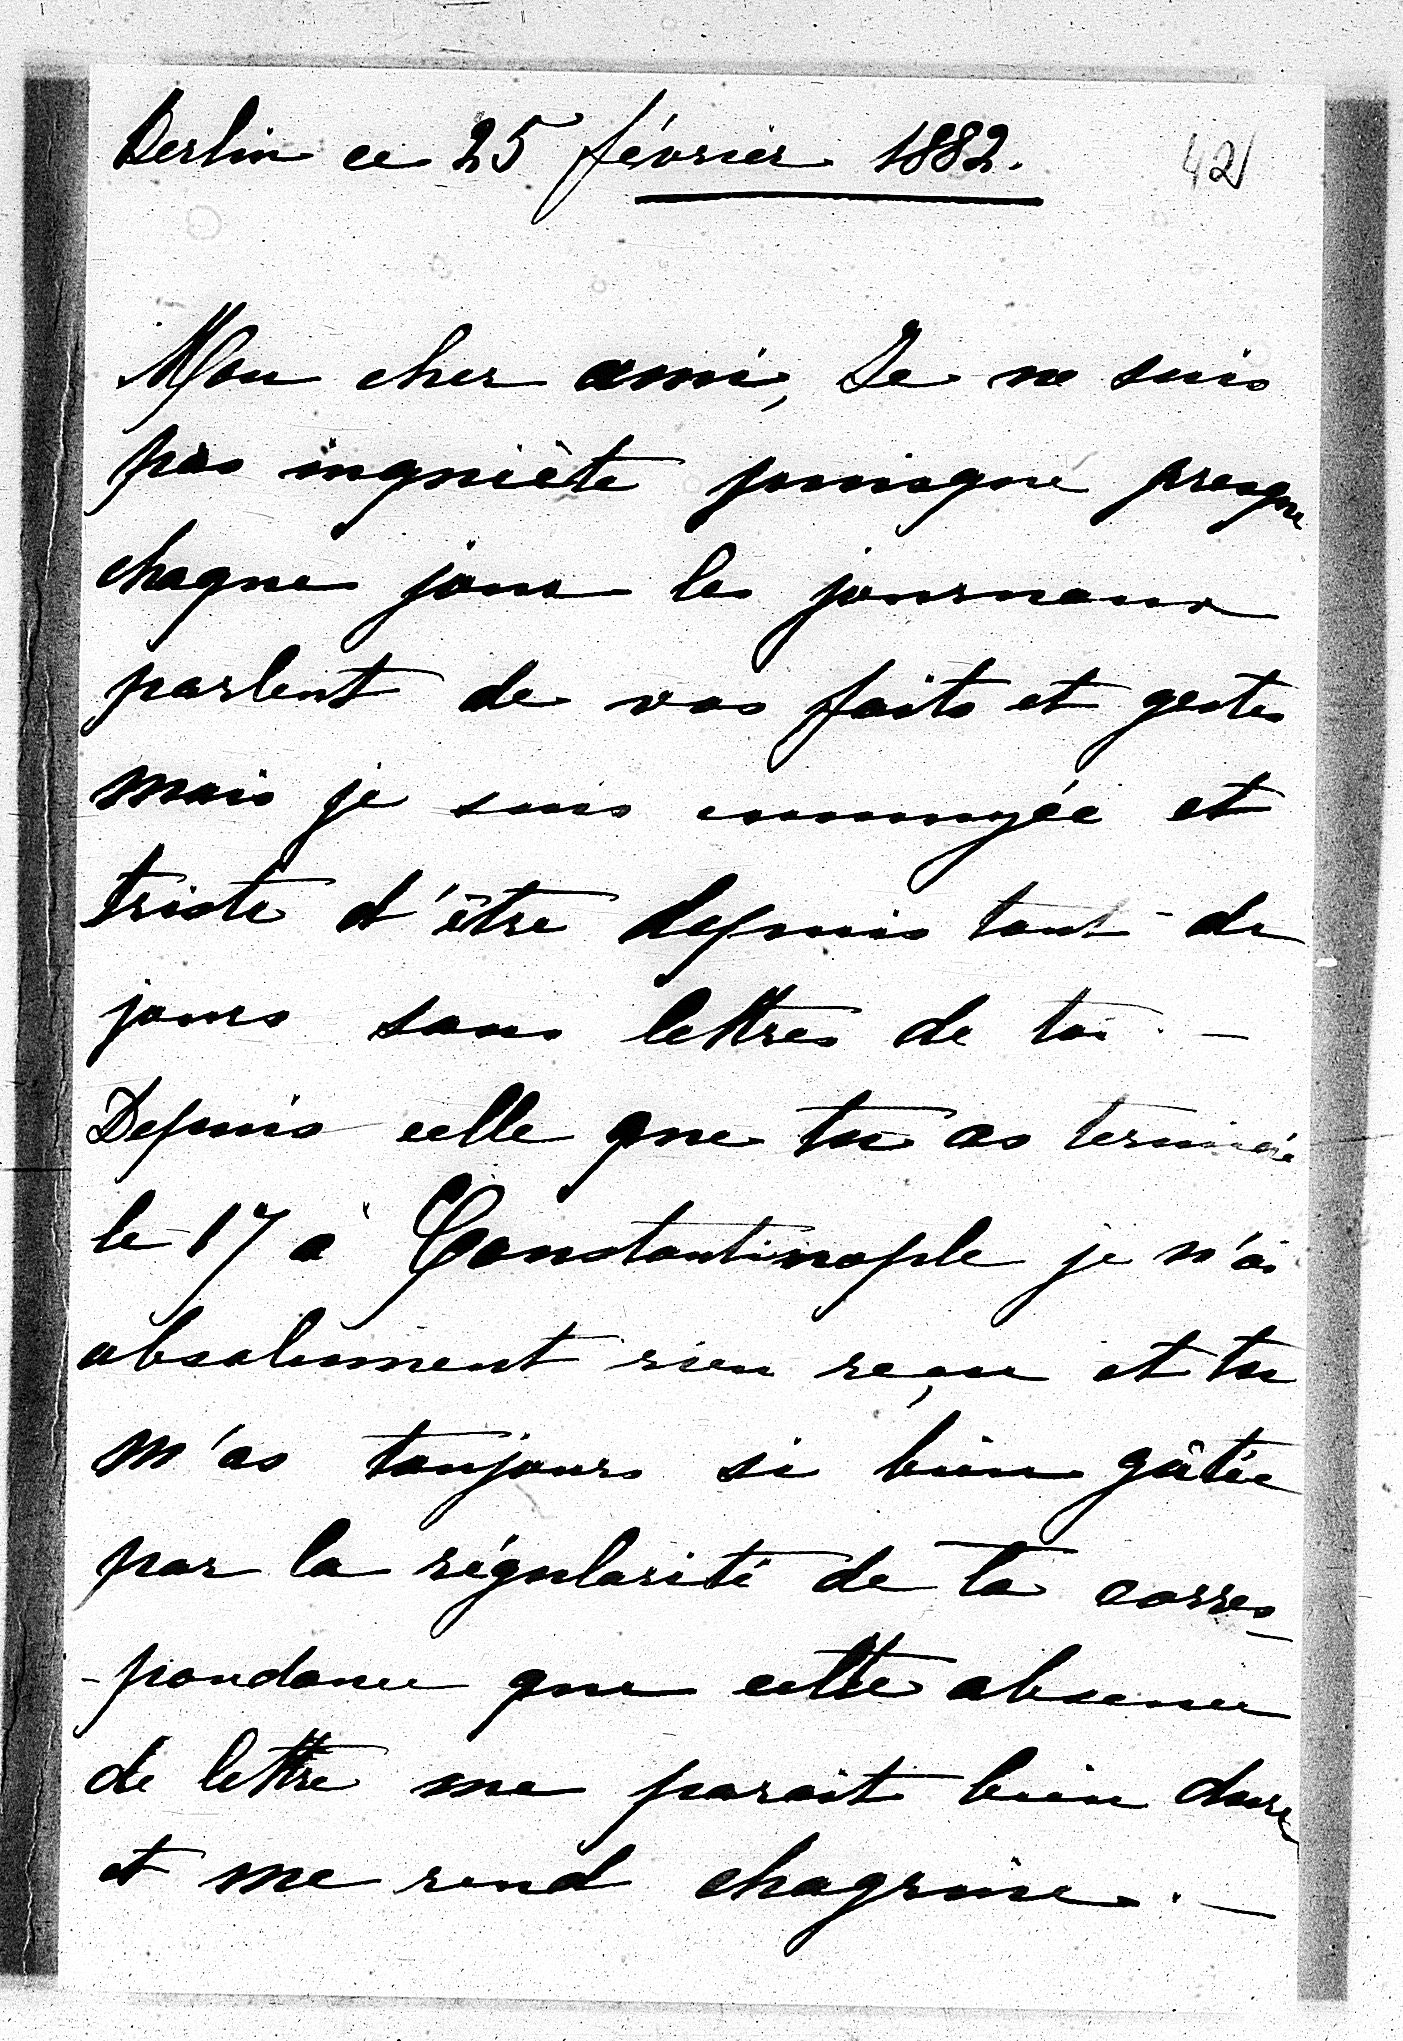 Berlin ce 25 février 1882.
42
Mon cher ami, Je ne suis
pas inquiète puisque presque
chaque jour les journaux
parlent de vos faits et gestes
mais je suis ennuyée et
triste d'être depuis tant de
jours sans lettres de toi. –
Depuis celle que tu as terminée
le 17 à Constantinople je n'ai
absolument rien reçu et tu
m'as toujours si bien gâtée
par la régularité de ta corres-
-pondance que cette absence
de lettre me parait bien dure
et me rend chagrine. –